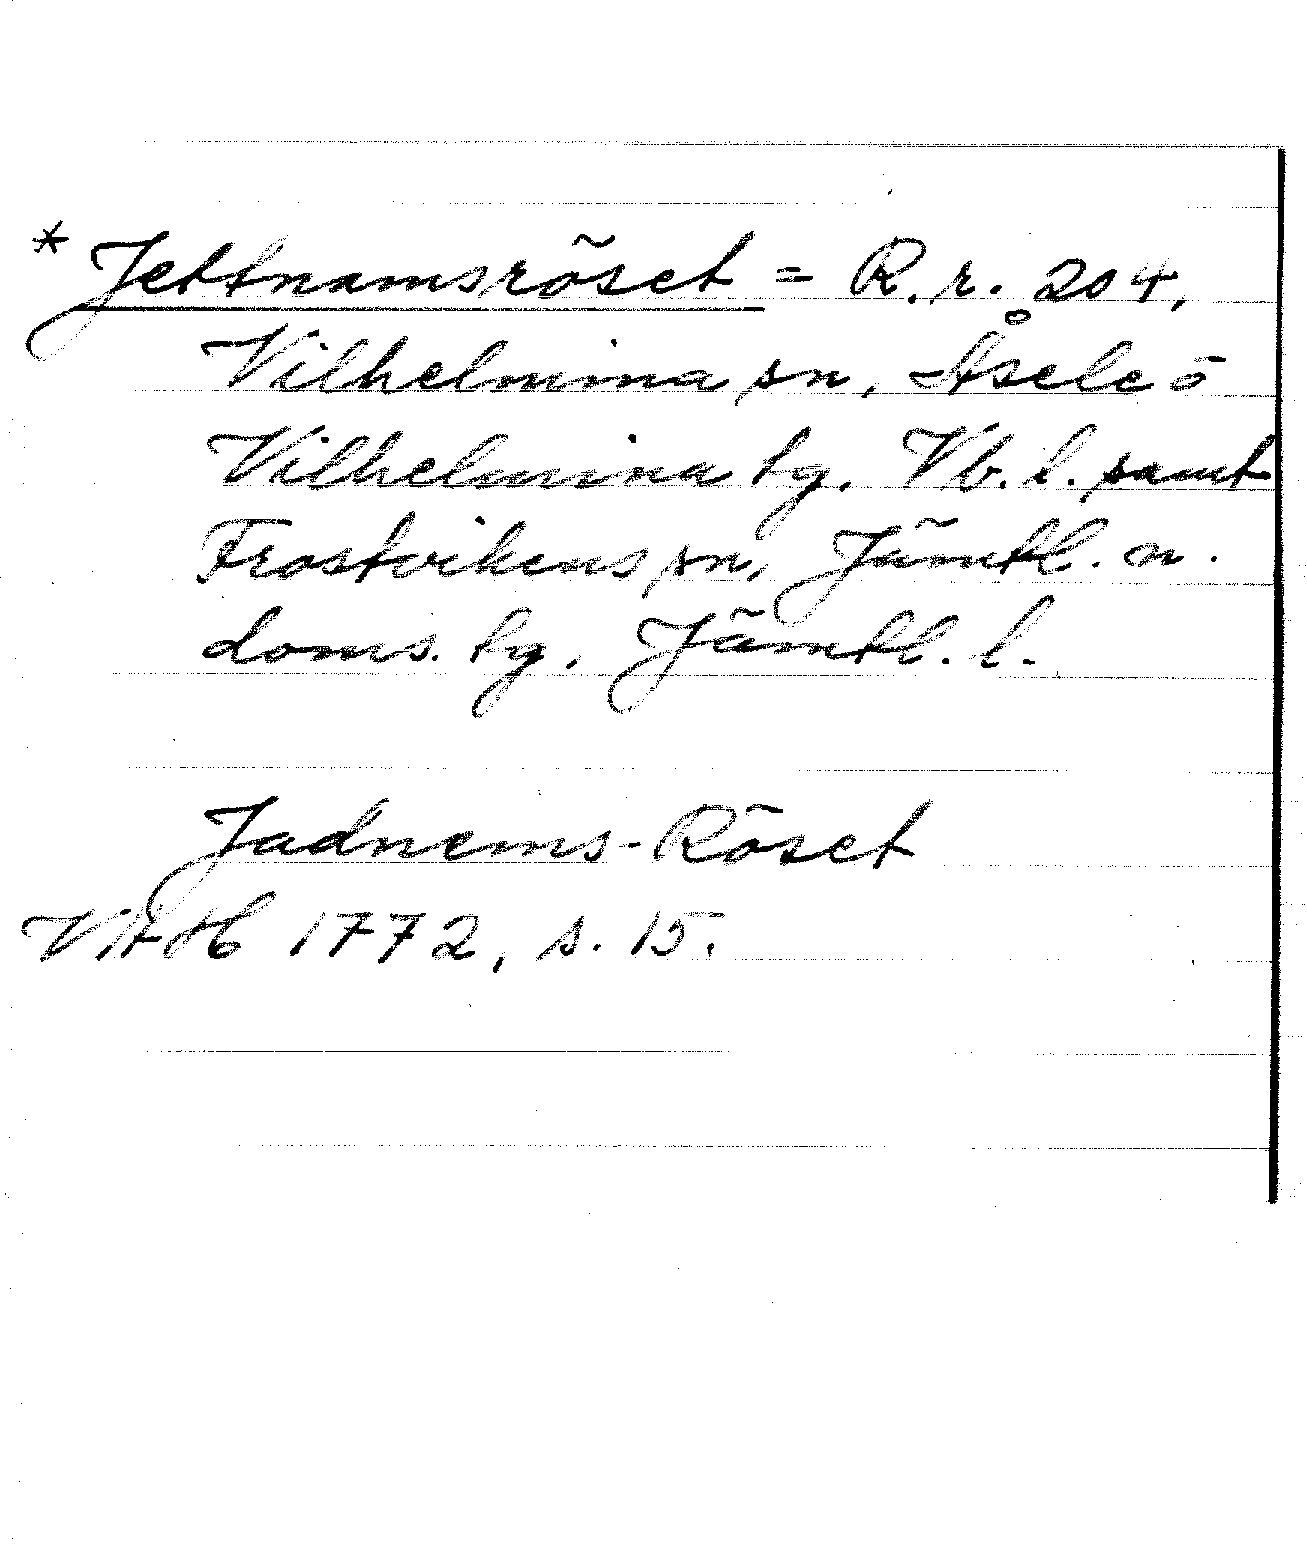 * Jettnamsröset = R.r. 204,
Vilhelmina sn, Åsele o
Vilhelmina tg. Vb. l. samt
Frostvikens sn, Jämtl. n.
doms. tg. Jämtl. l.
Jadnems-Röset
VAH 1772, s. 15.